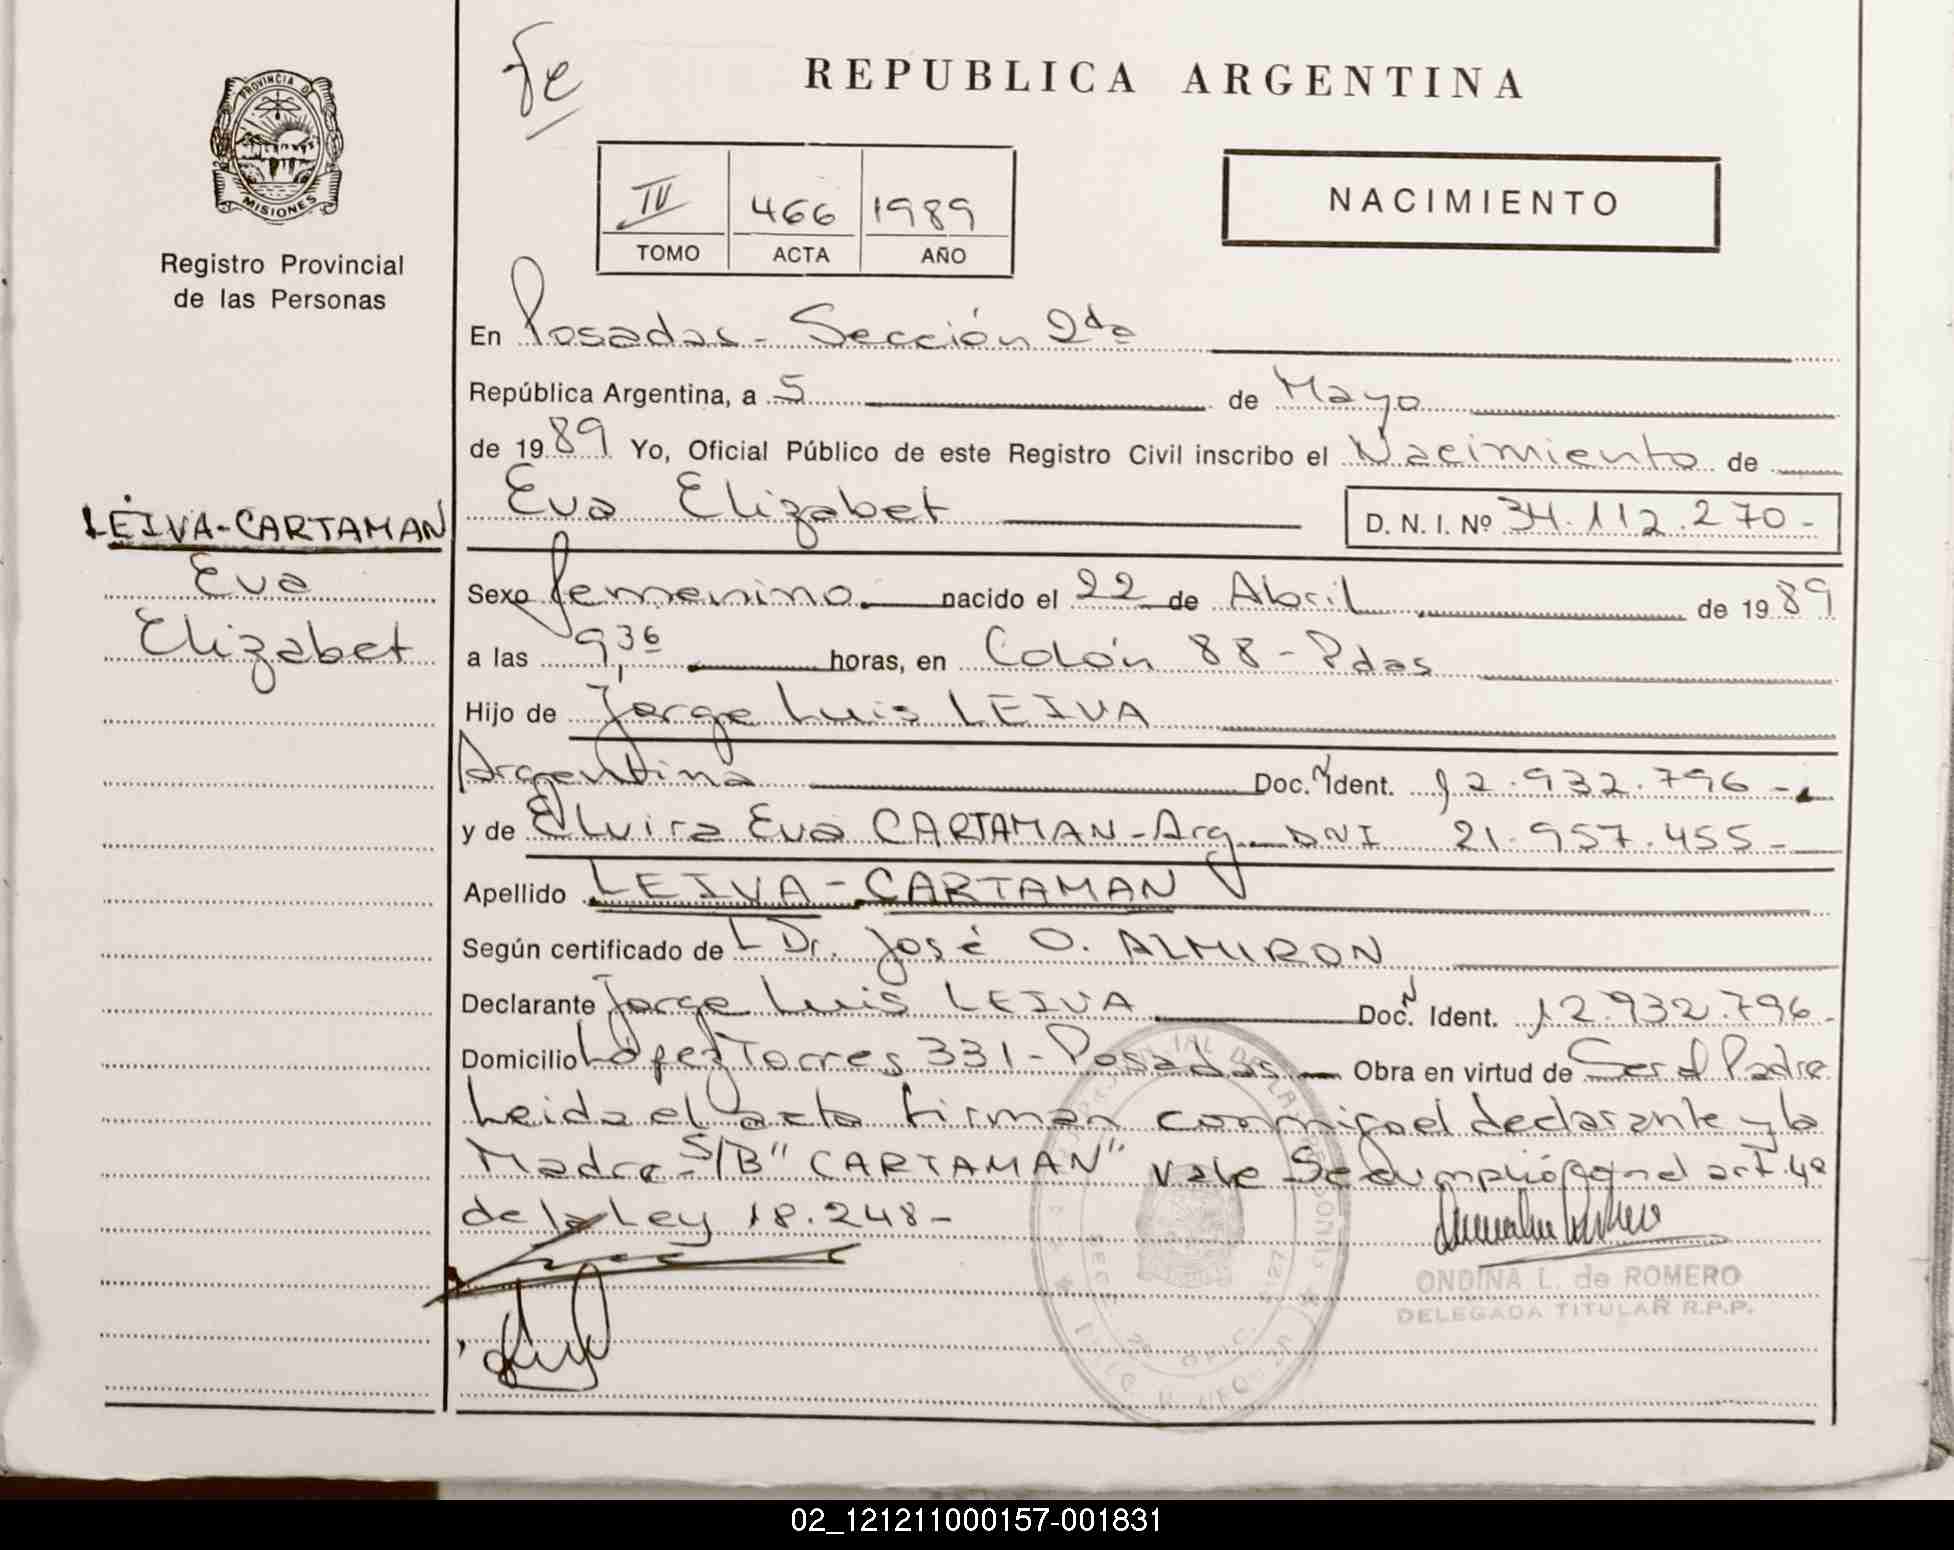 Fe
REPUBLICA ARGENTINA
PROVINCIA D
MISIONES
Registro Provincial
de las Personas
IV 466 1989
TOMO ACTA AÑO
NACIMIENTO
En Posadas - Sección 2da
República Argentina, a 5 de Mayo
de 1989 Yo, Oficial Público de este Registro Civil inscribo el Nacimiento de
Eva Elizabet D. N. I. Nº 34.112.270-
LEIVA-CARTAMAN
Eva
Elizabet
Sexo femenino nacido el 22 de Abril de 1989
a las 9,36 horas, en Colón 88 - Pdas
Hijo de Jorge Luis LEIVA
Argentina Doc. Ident. 12.932.796-
y de Elvira Eva CARTAMAN - Arg - DNI 21.957.455-
Apellido LEIVA - CARTAMAN
Según certificado de L Dr. José O. ALMIRON
Declarante Jorge Luis LEIVA Doc. Ident. 12.932.796-
Domicilio López Torres 331 - Posadas Obra en virtud de Ser el Padre
Leida el acta firman conmigo el declarante y la
Madre - S/B "CARTAMAN" vale Se cumplió con el art. 4º
de la Ley 18.248-
ONDINA L. de ROMERO
DELEGADA TITULAR R.P.P.
02_121211000157-001831